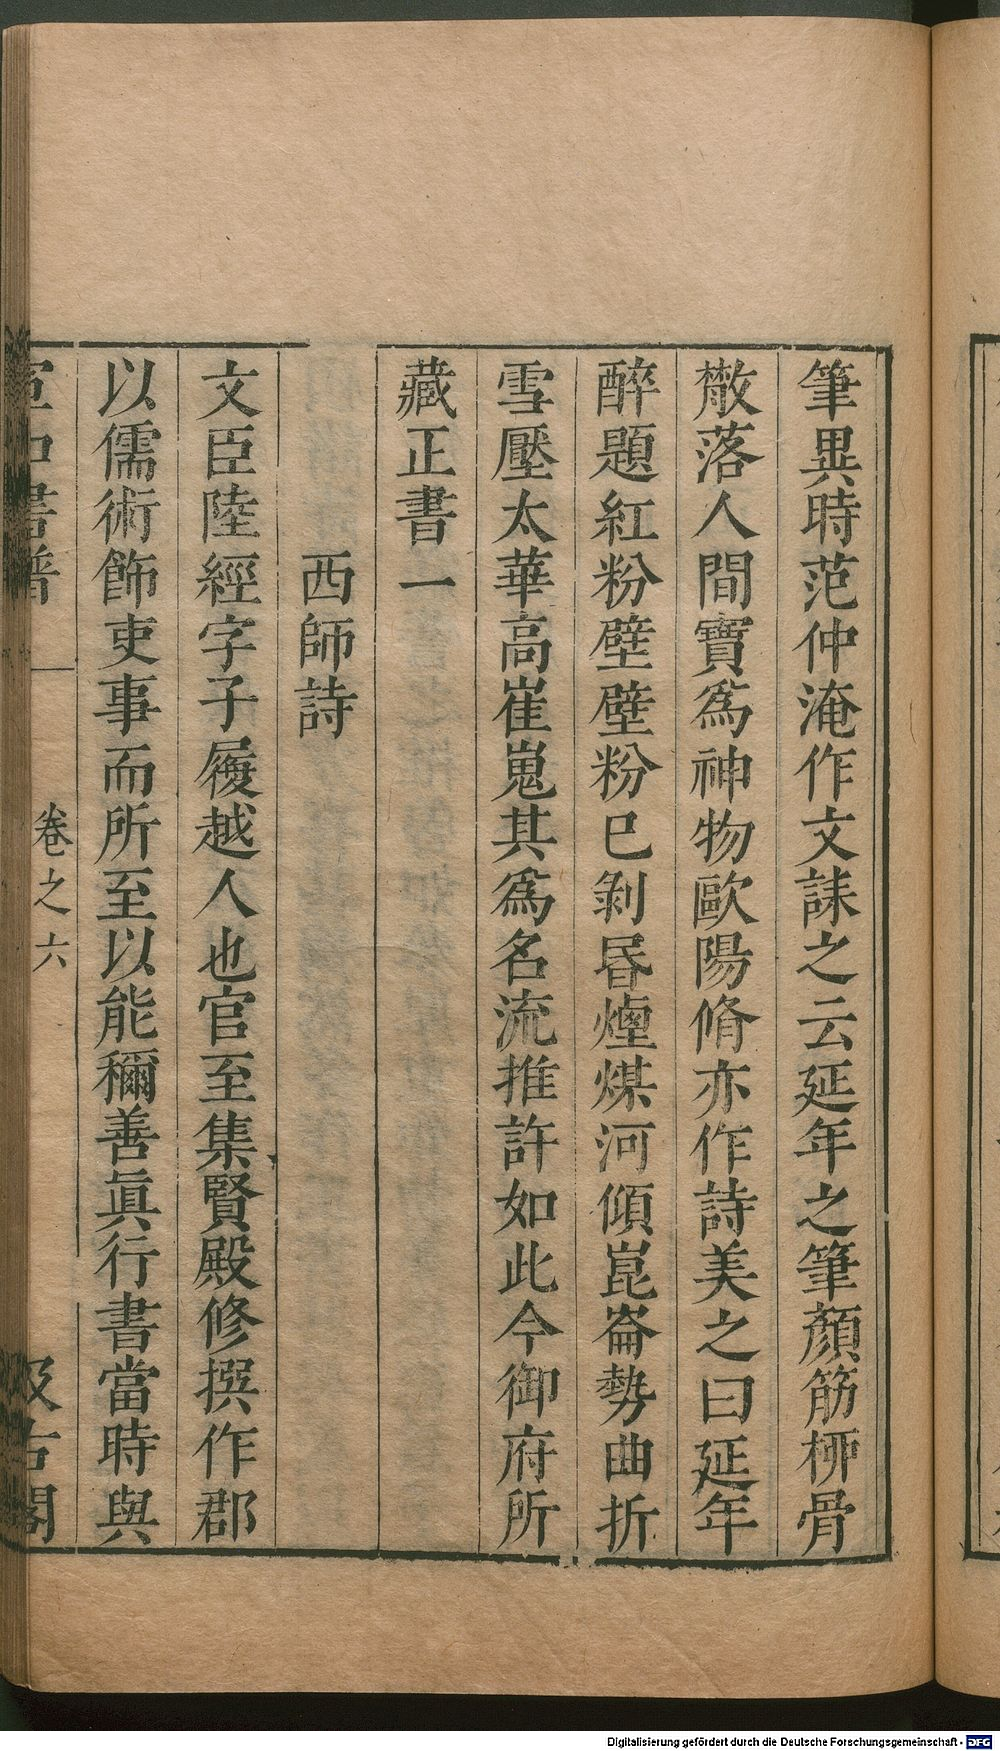 筆異時范仲淹作文誄之云延年之筆顔筋柳骨
散落人間寶為神物歐陽脩亦作詩美之曰延年
醉題紅粉壁壁粉已剝昬煙煤河傾崑崙勢曲折
雪壓太華高崔嵬其為名流推許如此今御府所
藏正書一
西師詩
文臣陸經字子履越人也官至集賢殿修撰作郡
以儒術飾吏事而所至以能稱善眞行書當時與
宣和書譜
卷之六
汲古閣
Digitalisierung gefördert durch die Deutsche Forschungsgemeinschaft - DFG